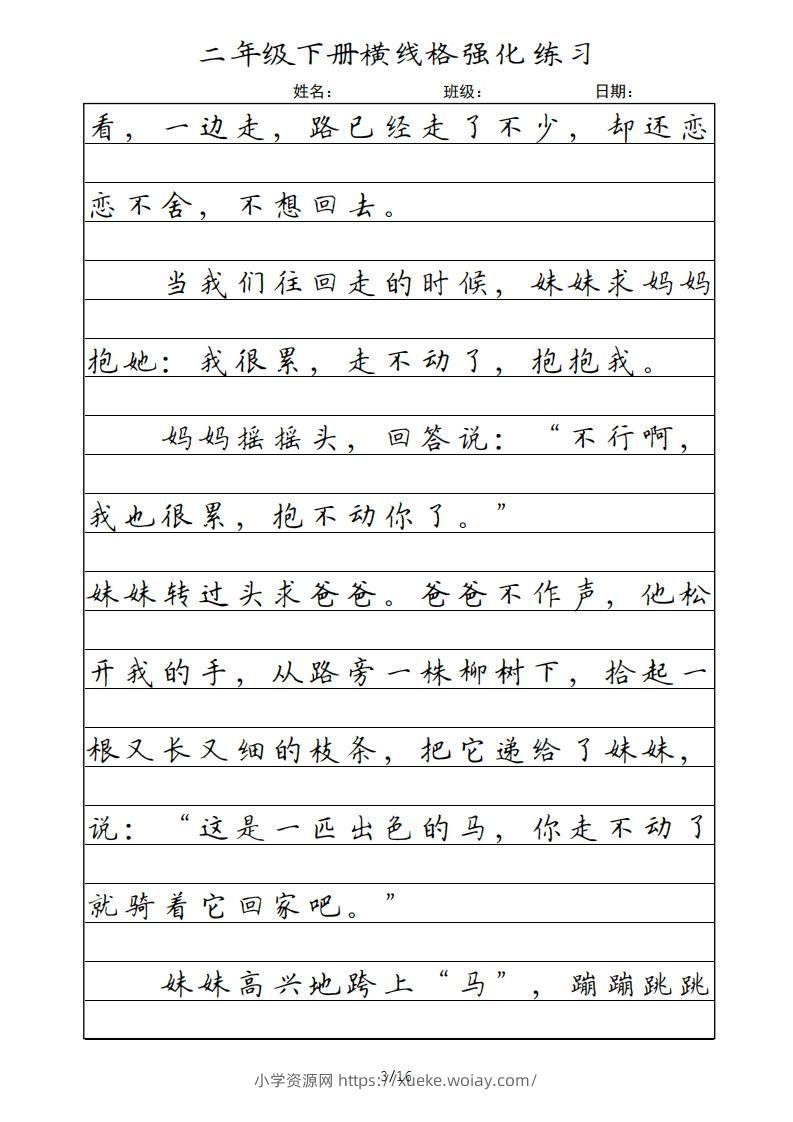 二年级下册横线格强化练习
姓名： 班级： 日期：
看，一边走，路已经走了不少，却还恋
恋不舍，不想回去。
当我们往回走的时候，妹妹求妈妈
抱她：我很累，走不动了，抱抱我。
妈妈摇摇头，回答说：“不行啊，
我也很累，抱不动你了。”
妹妹转过头求爸爸。爸爸不作声，他松
开我的手，从路旁一株柳树下，拾起一
根又长又细的枝条，把它递给了妹妹，
说：“这是一匹出色的马，你走不动了
就骑着它回家吧。”
妹妹高兴地跨上“马”，蹦蹦跳跳
3/16
小学资源网 https://xueke.woiay.com/